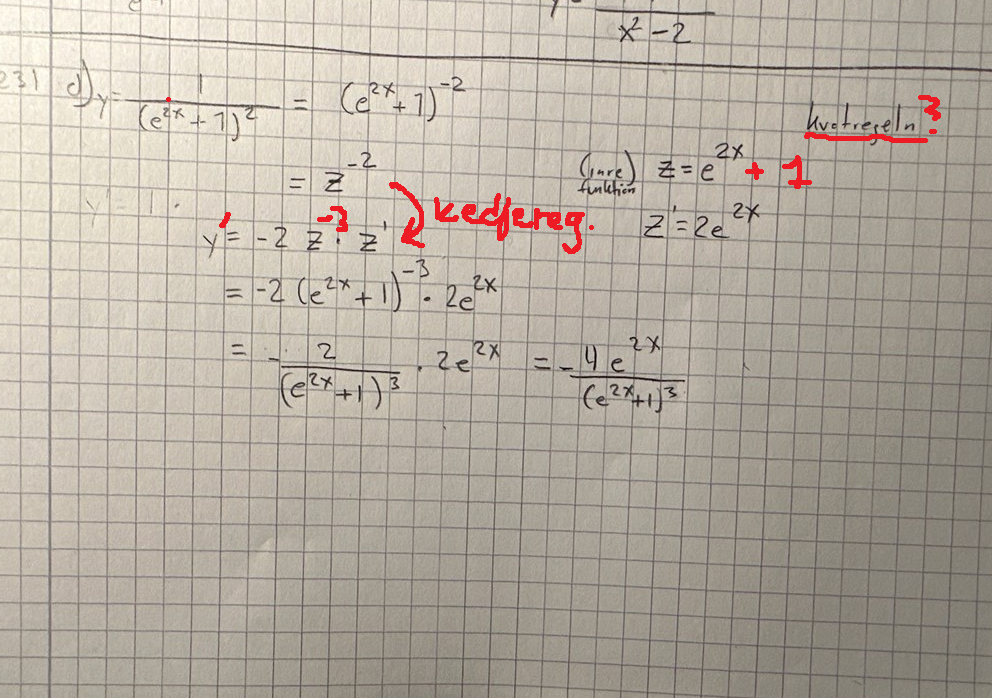 x² - 2
231 d) y = 1/(e^{2x} + 1)² = (e^{2x} + 1)^{-2}
kvotregeln?
= z^{-2} (inre funktion) z = e^{2x} + 1
y' = -2 z^{-3} · z' kedjereg. z' = 2e^{2x}
= -2 (e^{2x} + 1)^{-3} · 2e^{2x}
= - 2/(e^{2x} + 1)³ · 2e^{2x} = - 4e^{2x}/(e^{2x} + 1)³